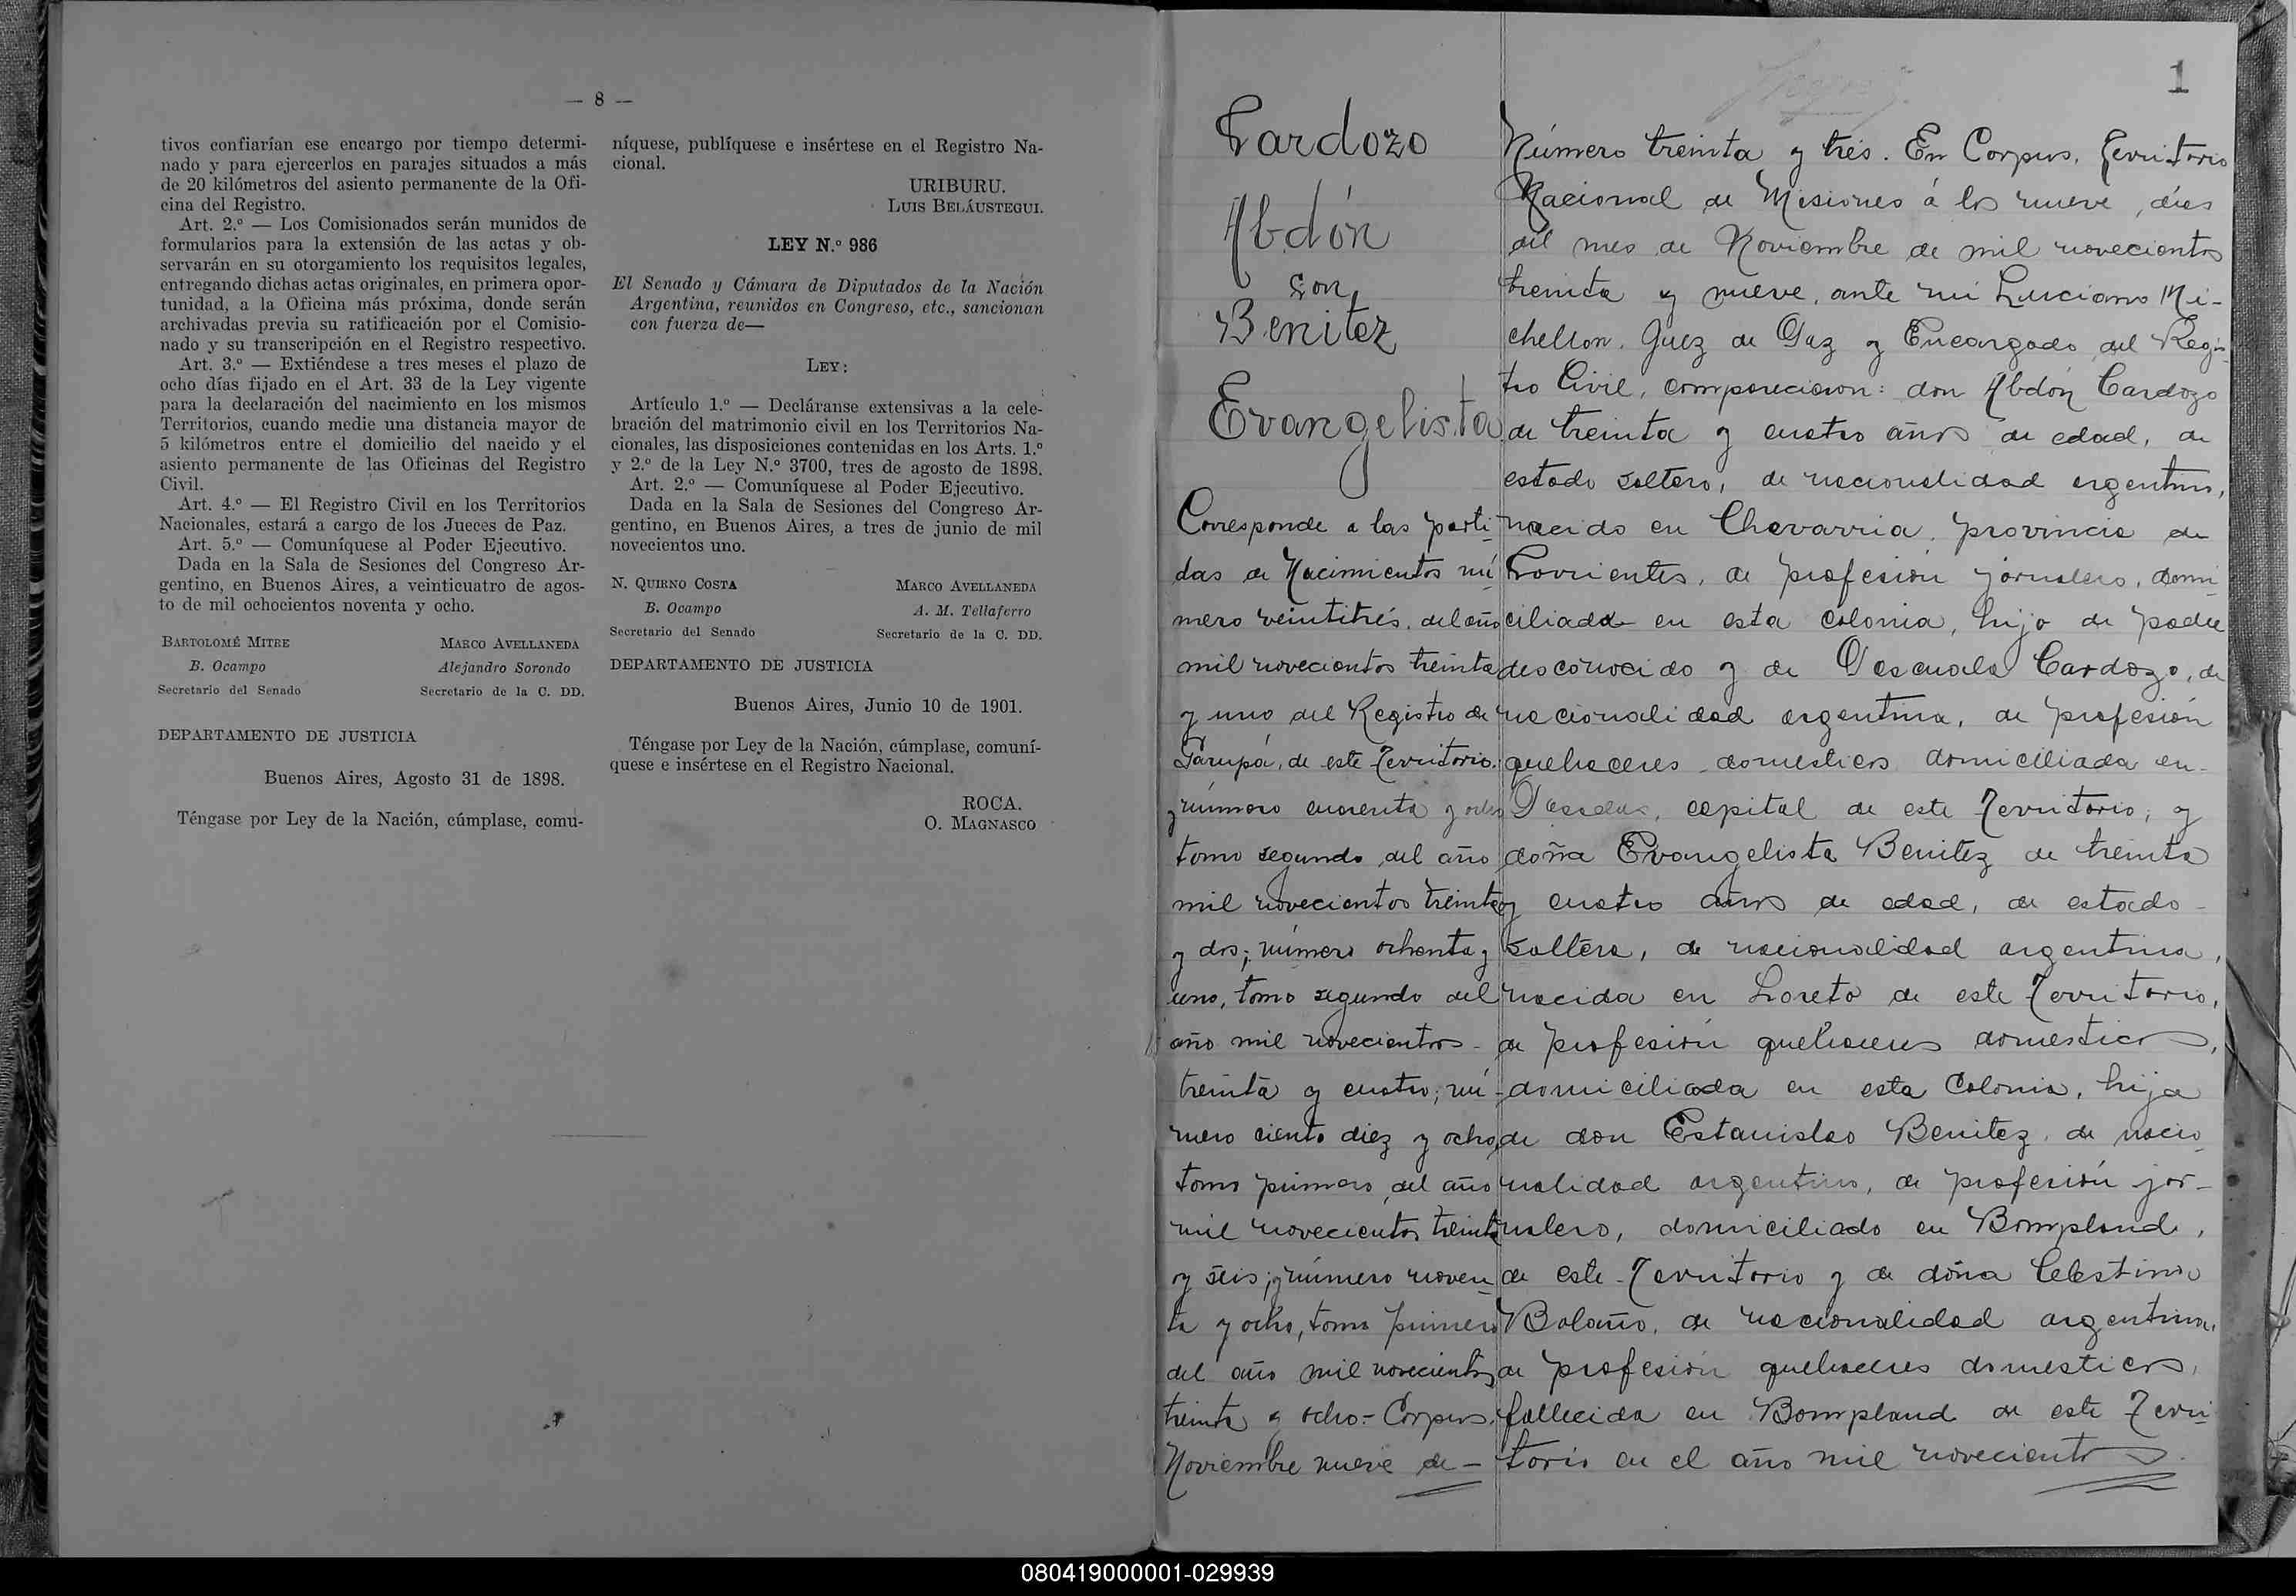 — 8 —
tivos confiarían ese encargo por tiempo determi-
nado y para ejercerlos en parajes situados a más
de 20 kilómetros del asiento permanente de la Ofi-
cina del Registro.
Art. 2.º — Los Comisionados serán munidos de
formularios para la extensión de las actas y ob-
servarán en su otorgamiento los requisitos legales,
entregando dichas actas originales, en primera opor-
tunidad, a la Oficina más próxima, donde serán
archivadas previa su ratificación por el Comisio-
nado y su transcripción en el Registro respectivo.
Art. 3.º — Extiéndese a tres meses el plazo de
ocho días fijado en el Art. 33 de la Ley vigente
para la declaración del nacimiento en los mismos
Territorios, cuando medie una distancia mayor de
5 kilómetros entre el domicilio del nacido y el
asiento permanente de las Oficinas del Registro
Civil.
Art. 4.º — El Registro Civil en los Territorios
Nacionales, estará a cargo de los Jueces de Paz.
Art. 5.º — Comuníquese al Poder Ejecutivo.
Dada en la Sala de Sesiones del Congreso Ar-
gentino, en Buenos Aires, a veinticuatro de agos-
to de mil ochocientos noventa y ocho.
BARTOLOMÉ MITRE MARCO AVELLANEDA
B. Ocampo Alejandro Sorondo
Secretario del Senado Secretario de la C. DD.
DEPARTAMENTO DE JUSTICIA
Buenos Aires, Agosto 31 de 1898.
Téngase por Ley de la Nación, cúmplase, comu-
níquese, publíquese e insértese en el Registro Na-
cional.
URIBURU.
LUIS BELÁUSTEGUI.
LEY N.º 986
El Senado y Cámara de Diputados de la Nación
Argentina, reunidos en Congreso, etc., sancionan
con fuerza de—
LEY:
Artículo 1.º — Decláranse extensivas a la cele-
bración del matrimonio civil en los Territorios Na-
cionales, las disposiciones contenidas en los Arts. 1.º
y 2.º de la Ley N.º 3700, tres de agosto de 1898.
Art. 2.º — Comuníquese al Poder Ejecutivo.
Dada en la Sala de Sesiones del Congreso Ar-
gentino, en Buenos Aires, a tres de junio de mil
novecientos uno.
N. QUIRNO COSTA MARCO AVELLANEDA
B. Ocampo A. M. Tellaferro
Secretario del Senado Secretario de la C. DD.
DEPARTAMENTO DE JUSTICIA
Buenos Aires, Junio 10 de 1901.
Téngase por Ley de la Nación, cúmplase, comuní-
quese e insértese en el Registro Nacional.
ROCA.
O. MAGNASCO
1
Cardozo
Abdón
con
Benitez
Evangelista
Corresponde a las parti-
das de Nacimientos nú-
mero veintitrés, del año
mil novecientos treinta
y uno del Registro de
Garupá, de este Territorio;
y número cuarenta y ocho
tomo segundo del año
mil novecientos treinta
y dos; número ochenta y
uno, tomo segundo del
año mil novecientos -
treinta y cuatro; nú-
mero ciento diez y ocho
tomo primero del año
mil novecientos treinta
y seis; y número noven-
ta y ocho, tomo primero
del año mil novecientos
treinta y ocho.- Corpus,
Noviembre nueve de -
Número treinta y tres. En Corpus, Territorio
Nacional de Misiones á los nueve, dias
del mes de Noviembre de mil novecientos
treinta y nueve, ante mi Luciano Mi-
chellon, Juez de Paz y Encargado del Regis-
tro Civil, comparecieron: don Abdón Cardozo
de treinta y cuatro años de edad, de
estado soltero, de nacionalidad argentino,
nacido en Chavarria, provincia de
Corrientes, de profesión jornalero, domi-
ciliado en esta colonia, hijo de padre
desconocido y de Pascuala Cardozo, de
nacionalidad argentina, de profesión
quehaceres domesticos domiciliada en
Posadas, capital de este Territorio; y
doña Evangelista Benitez de treinta
y cuatro años de edad, de estado -
soltera, de nacionalidad argentina,
nacida en Loreto de este Territorio,
de profesión quehaceres domesticos,
domiciliada en esta Colonia, hija
de don Estanislao Benitez, de nacio-
nalidad argentino, de profesión jor-
nalero, domiciliado en Bompland,
de este Territorio y de doña Celestina
Bolaño, de nacionalidad argentina,
de profesión quehaceres domesticos,
fallecida en Bompland de este Terri-
torio en el año mil novecientos
080419000001-029939